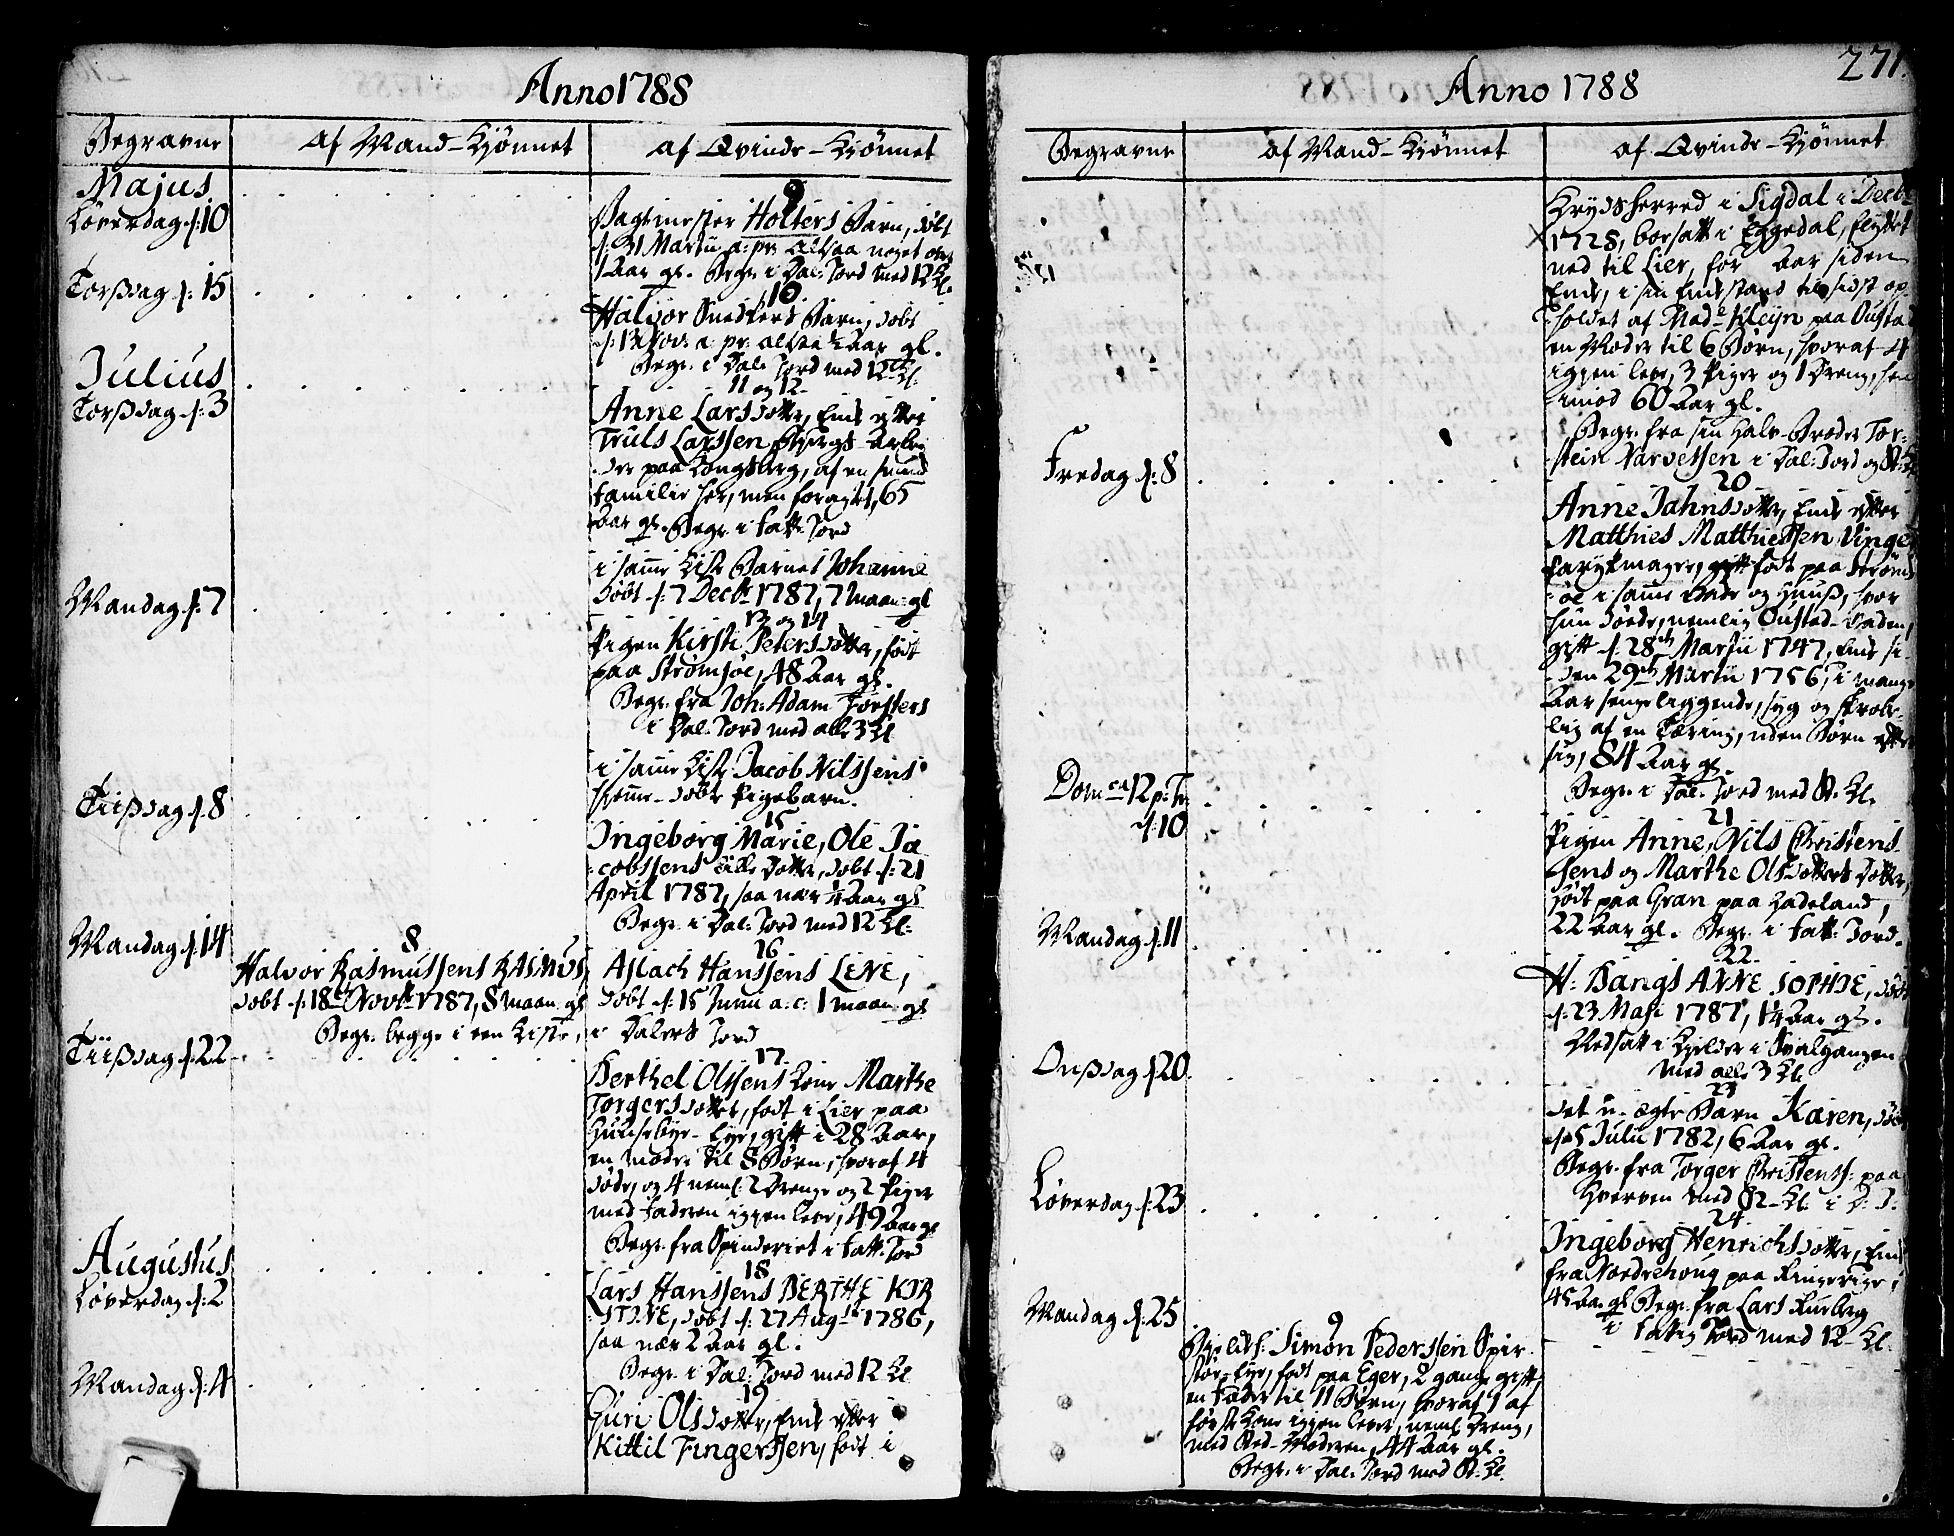 Anno 1788
Begravne
af Mand-Kjønnet
af Qvinde-Kjønnet
Majus
Løverdag d: 10
9
Vagtmester Holters Barn, døbt
d: 31 Martii a: pr: altsaa noget over
1 Aar gl. Begr: i Dal: Jord med 12 Kl.
Torsdag d: 15
10
Halvor Snedkers Barn, døbt
d: Nov: a: pr: altsaa ½ Aar gl.
Begr. i Dal: Jord med 12 Kl:
Julius
Torsdag d: 3
11 og 12
Anne Larsdatter, Enke efter
Truls Larssen Bergs-Arbei-
der paa Kongsberg, af en
familie her, men foragtet, 65
Aar gl. Begr. i Fatt: Jord
i samme Kiste Barnet Johanne
døbt d: 7 Decbr 1787, 7 maan: gl
Mandag d: 7
13 og 14
Pigen Kirsti Petersdatter, født
paa Strømsøe, 48 Aar gl.
Begr. fra Joh: Adam Forsters
i Dal: Jord med alle 3 Kl.
i samme Kiste Jacob Nilssens
hjemme-døbte Pigebarn.
Tiisdag d: 8
15
Ingeborg Marie, Ole Ja-
cobssens Datter, døbt d: 21
April 1787, saa nær ¼ Aar gl
Begr: i Dal: Jord med 12 Kl:
Mandag d: 14
8
Halvor Rasmussens RASMUS,
døbt d: 18de Novbr 1787, 8 maan: gl
16
Aslach Hanssens LENE,
døbt d: 15 Junii a: c: 1 maan: gl
Begr. begge i een Kiste, i Dalers Jord
Tiisdag d: 22
17
Berthel Olssens Kone Marthe
Torgersdatter, født i Lier paa
gift i 28 Aar,
en moder til 8 Børn, hvoraf 4
døde, og 4 neml: 2 Drenge og 2 Piger
med Faderen igjen lever, 49 Aar gl
Begr. fra Spinderiet i Fatt: Jord
Augustus
Løverdag d: 2
18
Lars Hanssens BERTHE KIR-
STINE, døbt d: 27 Augti 1786,
saa nær 2 Aar gl.
Begr. i Dal: Jord med 12 Kl
Mandag d: 4
19
Guri Olsdatter, Enke efter
Kittil Fingerssen, født i
271.
Anno 1788
Begravne
af Mand-Kjønnet
af Qvinde-Kjønnet
Krydsherred i Sigdal i Decbr
1728, borsatt i Eggedal, flyttet
ned til Lier, for Aar siden
Enke, i sin Enkestand til sidst op-
holdet af Made Kleyn paa Oustad
en Moder til 6 Børn, hvoraf 4
igjen lever, 3 Piger og 1 Dreng, hen
imod 60 Aar gl.
Begr. fra sin Halv-Broder Tor-
stein Narvessen i Dal: Jord og
Fredag d: 8
20
Anne Jahnsdatter, Enke efter
Matthies Matthiessen Vinge
Parykmager, født paa Strøms-
øe i samme Gade og Huus, hvor
hun døde, nemlig Oustad-Gaden,
gift d: 28de Martii 1747, Enke si-
den 29de Martii 1756, i mange
Aar sengeliggende, syg og skrøbe-
lig af en Tæring, uden Børn efter
sig, 84 Aar gl.
Begr. i Dal: Jord med St. Kl.
Domca 12 p: Tr:
d: 10
21
Pigen Anne, Nils Christens-
sens og Marthe Olsdatters Datter,
født paa Gran paa Hadeland,
22 Aar gl. Begr. i Fatt: Jord.
Mandag d: 11
22
H: Bangs ANNE SOPHIE, døbt
d: 23 Maji 1787, 1¼ Aar gl.
Nedsatt i Kjelder i Svalgangen
med alle 3 Kl
Onsdag d: 20
23
det u-ægte Barn Karen, døbt
d: 5 Julii 1782, 6 Aar gl.
Begr. fra Torger Christenss: paa
Hverven med St-Kl: i D: J.
Løverdag d: 23
24
Ingeborg Henrichsdatter, Enke
fra Nordrehoug paa Ringerige,
45 Aar gl Begr. fra Lars
i Fattig Jord med 12 Kl.
Mandag d: 25
9
Simon Pederssen Spir-
født paa Eger, 2 gange gift
en Fader til 11 Børn, hvoraf 1 af
første Kone igjen lever, neml. Dreng,
med Sted-Moderen, 44 Aar gl.
Begr. i Dal: Jord med St. Kl.